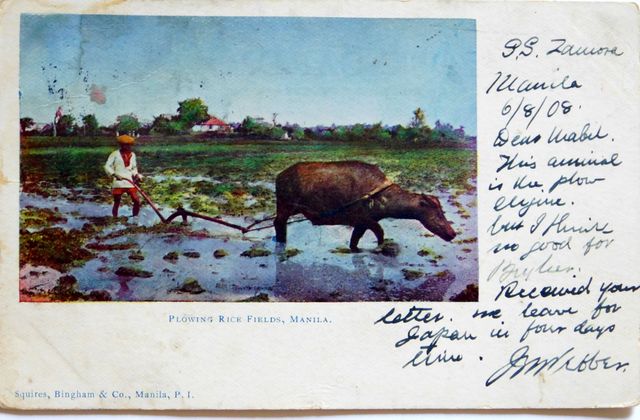 S.S. Zamora
Manila
6/8/08.
Dear Mabel.
This animal
is the plow
engine.
but I think
no good for
Received your
PLOWING RICE FIELDS, MANILA.
letter. we leave for
Japan in four days
time.
Squires, Bingham & Co., Manila, P. I.